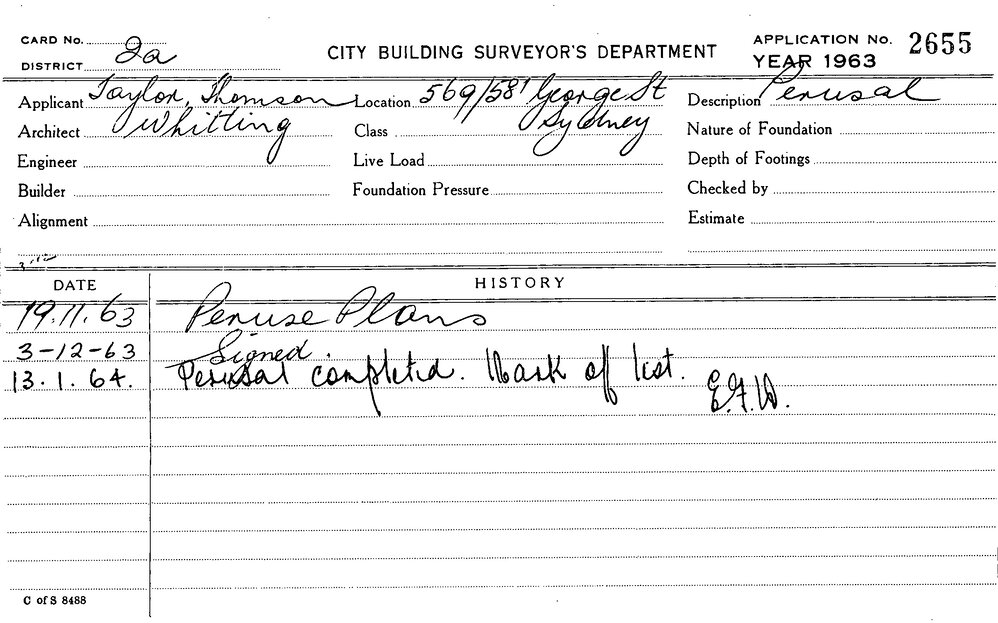 CARD No.
DISTRICT 2a
CITY BUILDING SURVEYOR'S DEPARTMENT
APPLICATION No. 2655
YEAR 1963
Applicant Taylor, Thomson
Location 569/581 George St
Description Perusal
Architect Whitting
Class Sydney
Nature of Foundation
Engineer
Live Load
Depth of Footings
Builder
Foundation Pressure
Checked by
Alignment
Estimate
DATE HISTORY
19.11.63 Peruse Plans
3-12-63 Signed.
13.1.64. Perusal completed. Mark off list.
C of S 8488